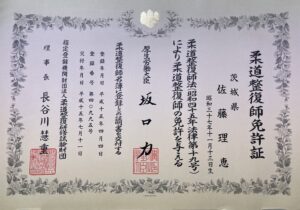 柔道整復師免許証
茨城県
佐藤理恵
昭和三十七年十一月十三日生
柔道整復師法(昭和四十五年法律第十九号)
により柔道整復師の免許を与える
厚生労働大臣
坂口力
柔道整復師名簿に登録し此の証書を交付する
登録年月日 平成十五年四月四日
登録番号 第四〇九九五号
交付年月日 平成十五年七月十一日
指定登録機関財団法人柔道整復研修試験財団
理事長 長谷川慧重